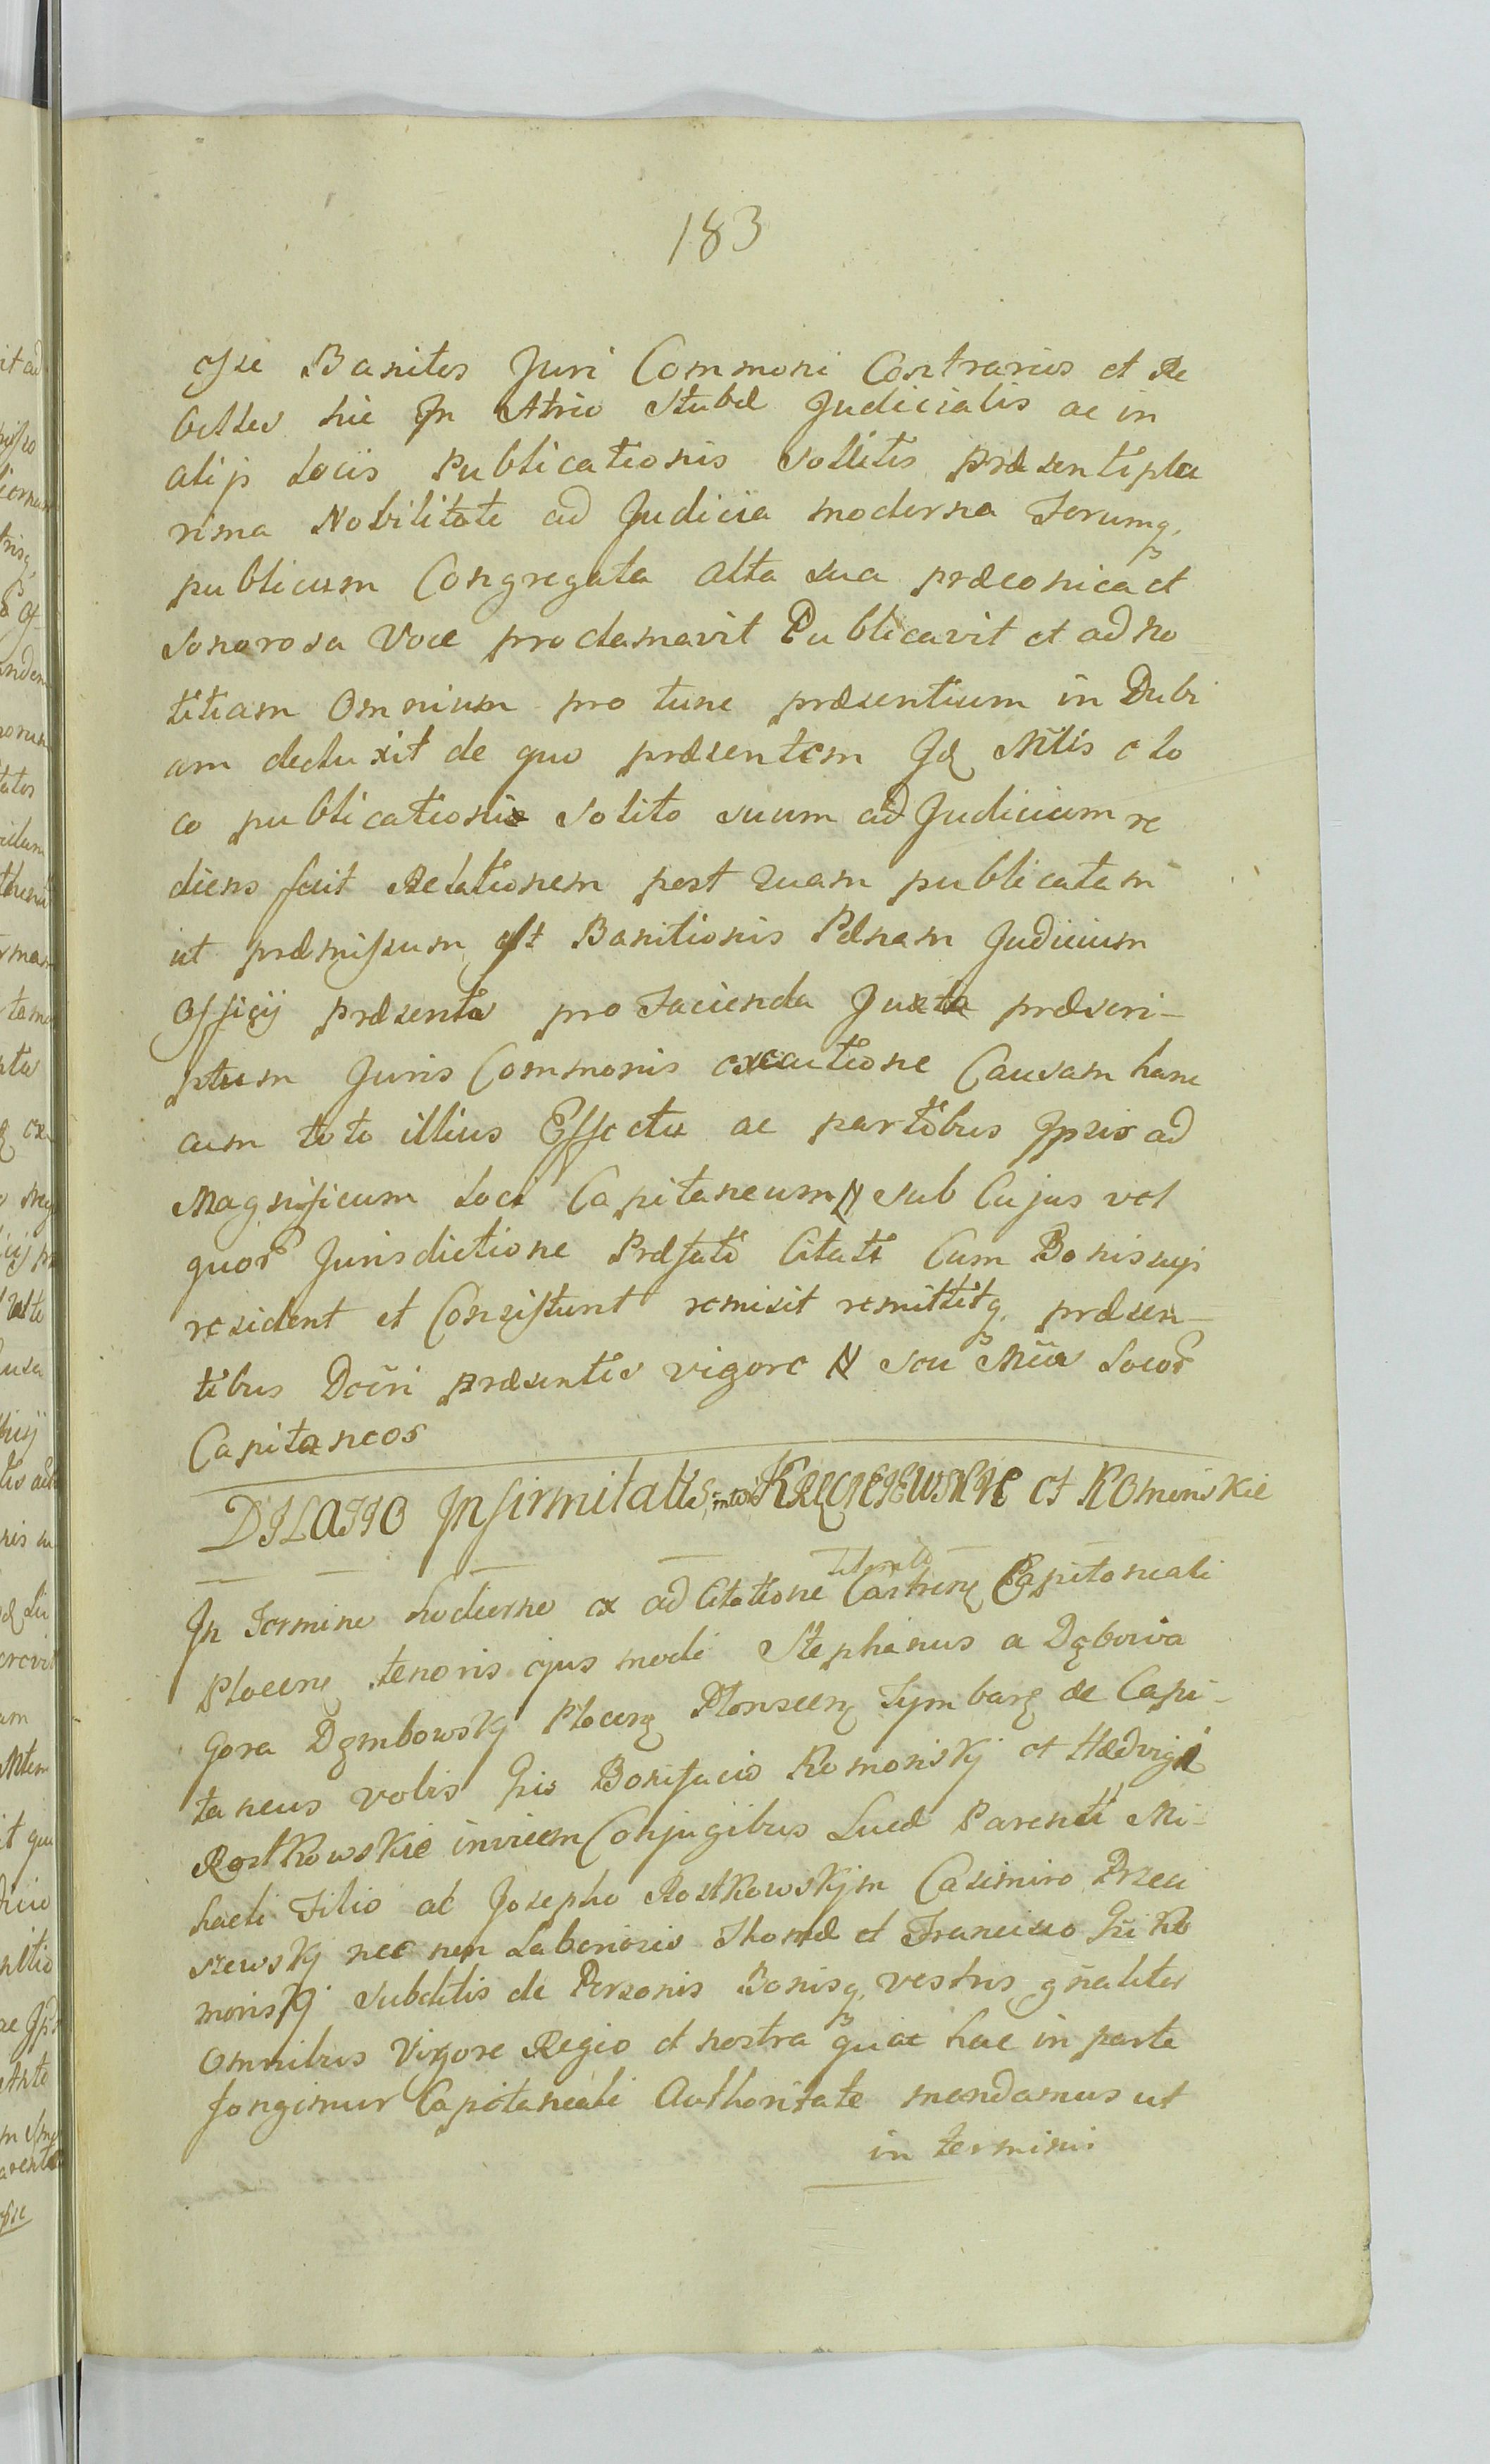 183
esse Banitos Juri Commoni Contrarios et Re
belles hic In Atrio Stubæ Judicialis ac in
alijs Locis Publicationis Sollitis præsenti plu
rima Nobilitate ad Judicia moderna Forumq,
publicum Congregata alta sua præconica et
Sonorosa Voce proclamavit Publicavit et ad no
titiam Omnium pro tunc præsentium in Dubi
am deduxit de quo præsentem Ids Mtlis e lo
co publicationis Solito suum ad Judicium re
diens fecit Relationem post Quam publicatam
ut præmissum est Banitionis Pænam Judicium
Officij præsentis pro Facienda Juxta præscri-
ptum Juris Commonis executione Causam hanc
cum toto illius Effectu ac partibus Ipsis ad
Magnificum Loci Capitaneum N Sub Cujus vel
quor Jurisdictione Præfati Citati Cum Bonis suis
resident et Consistunt remisit remittitq, præsen-
tibus Dcīri præsentis vigore N seu Mēos Locor
Capitaneos
DILATIO Infirmitatis inter KRECZESZEWSKIE et ROmińskie
In Termino hodierno ex ad Citatione Castren Capitaneali
Plocen tenoris ejus modi Stephanus a Dębowa
Gora Dęmbowsky Plocen Plonscen Tymbarg &c Capi-
taneus vobis Gis Bonifacio Romonisky et Hedvigi
Rostkowskie invicem Conjugibus Lucæ Parenti Mi-
haeli Filio ac Josepho Rostkowskym Casimiro Przeci
szewsky nec non Laboriosis Thomæ et Francisco Gri Ro
monisky Subditis de Personis Bonisq, vestris gñaliter
Omnibus Vigore Regio et nostra qua hac in parte
fongimur Capitaneali Authoritate mandamus ut
in termini